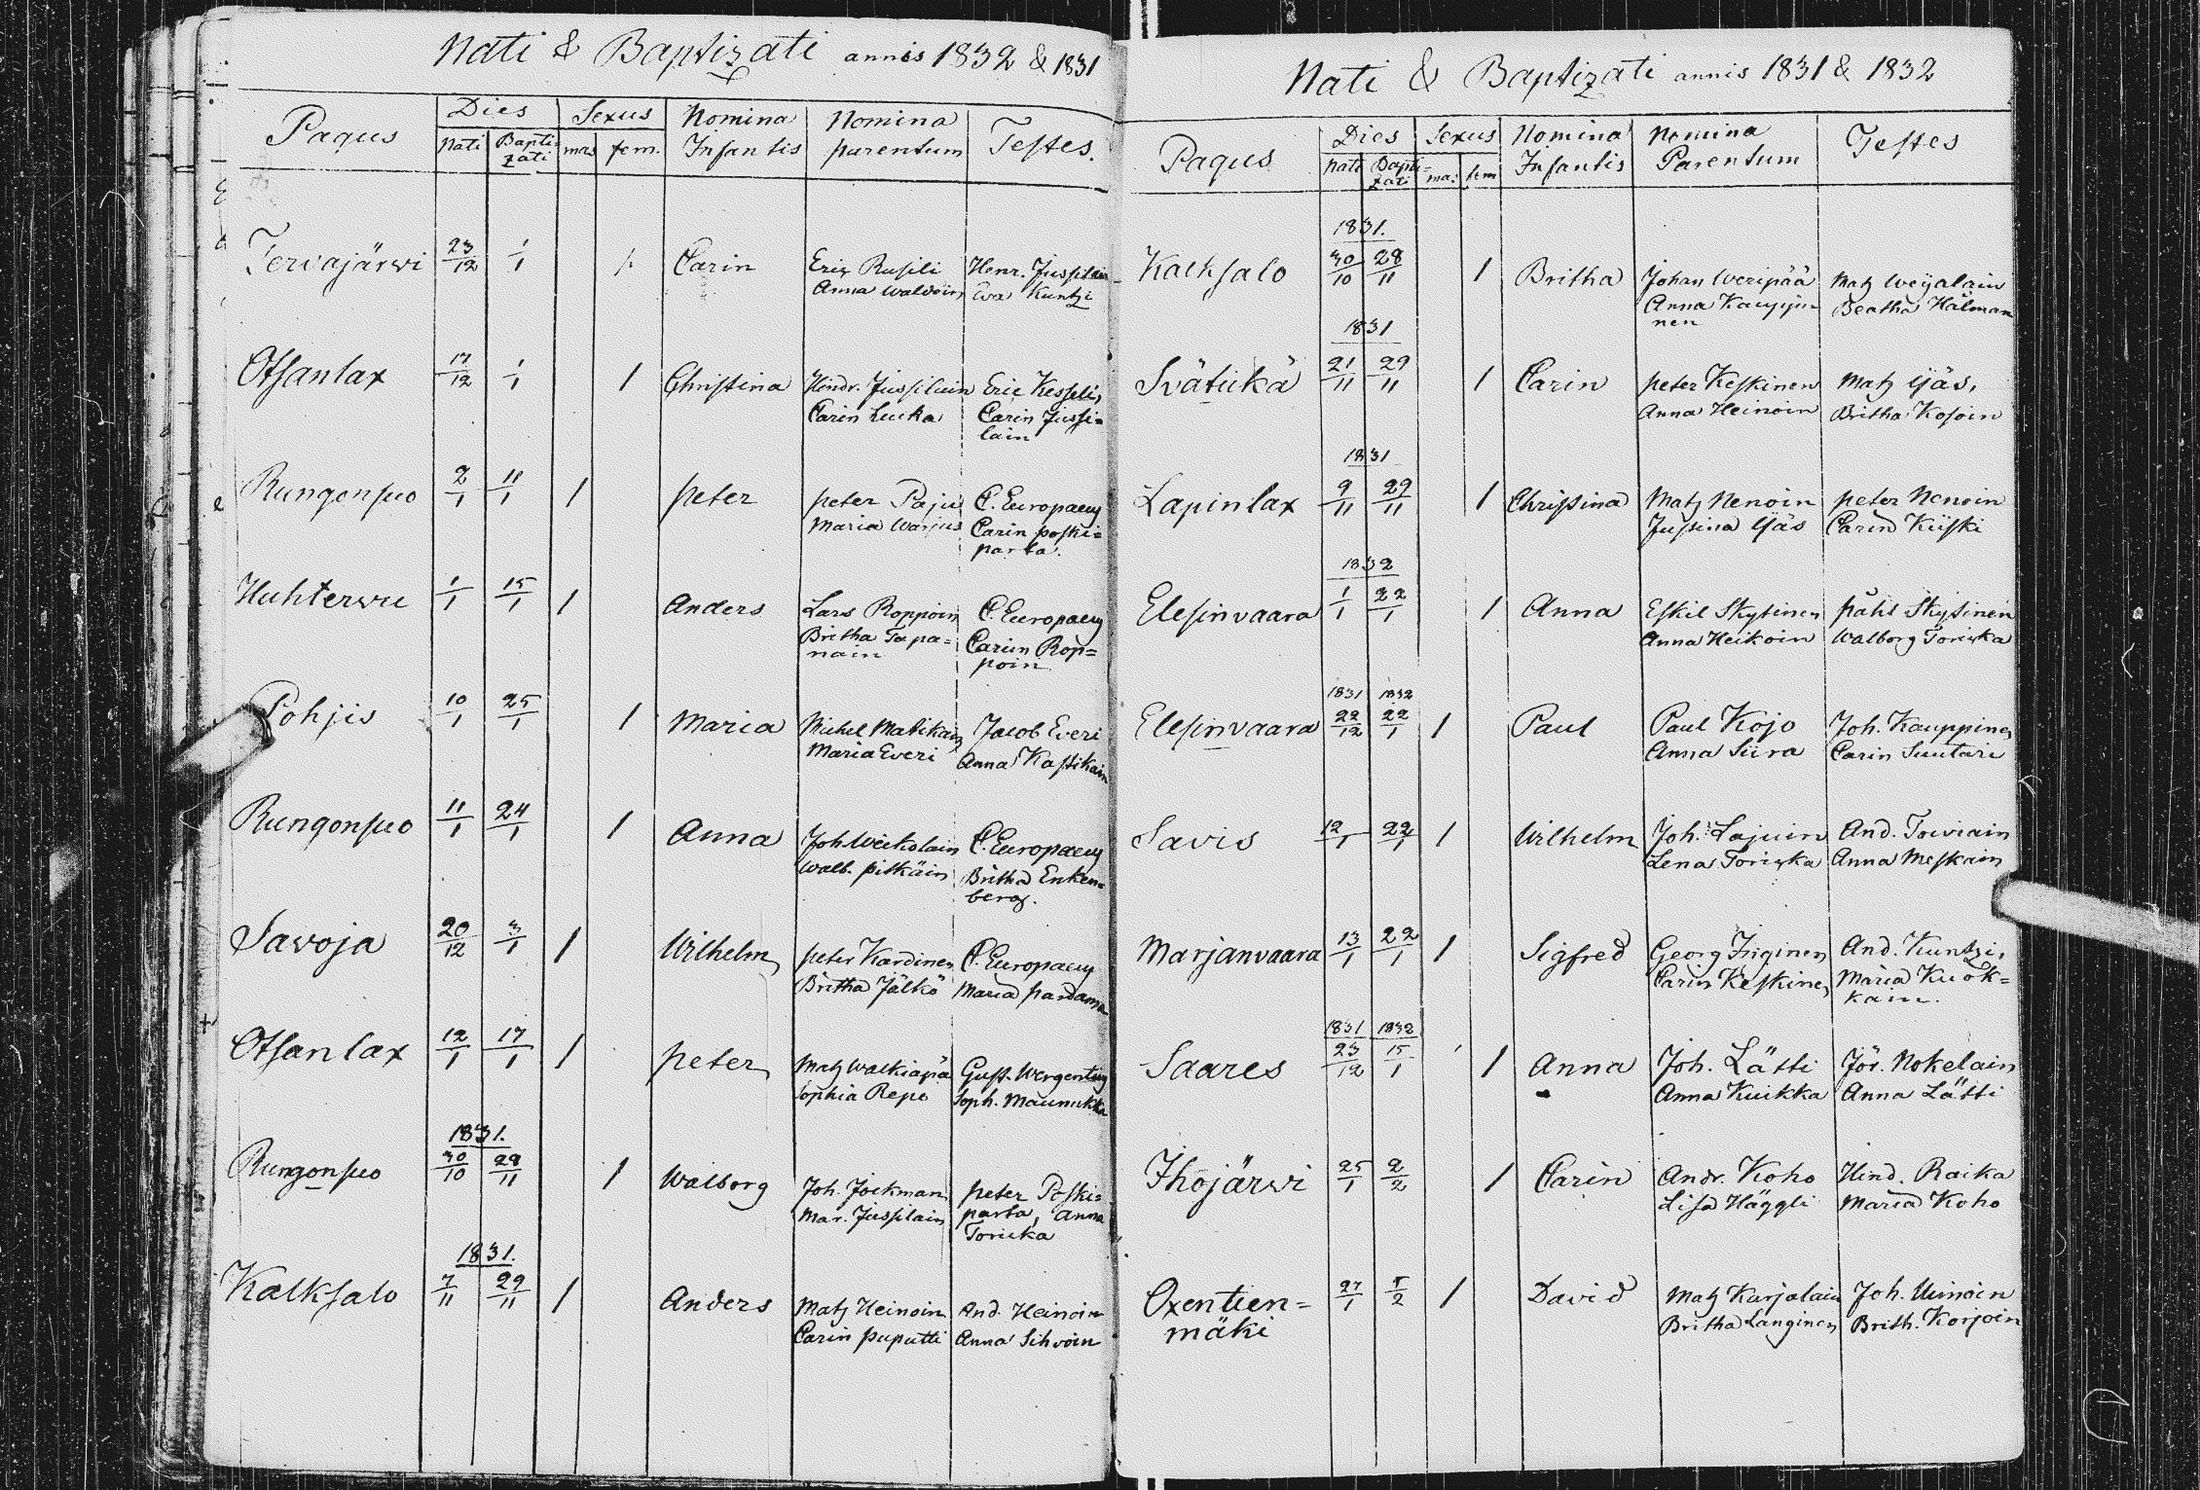 Nati & Baptizati annis 1832 & 1831
Pagus Dies Sexus Nomina Infantis Nomina parentum Testes.
Nati Baptizati mas fem.
Tervajärwi 23/12 1/1 1 Carin Eric Rusili Henr. Jussilain
Anna Waldoin Eva Kuntzi
Otsanlax 17/12 1/1 1 Christina Hindr. Jussilain Eric Kesseli,
Carin Lucka Carin Jussi=
lain
Rungonsuo 2/1 11/1 1 peter peter Paju C. Europaeus
Maria Warjus Carin poski=
parta.
Huhterwu 1/1 15/1 1 Anders Lars Roppoin C. Europaeus
Britha Tapa= Cariin Rop=
nain poin
Pohjis 10/1 25/1 1 Maria Michel Matikain Jacob Everi
Maria Everi Anna Kastikain
Rungonsuo 11/1 24/1 1 Anna Joh. Weikolain C. Europaeus
Walb. pitkäin Britha Enken=
berg.
Savoja 20/12 3/1 1 Wilhelm peter Kardinen C. Europaeus
Britha Jälkö Maria pardama
Otsanlax 12/1 17/1 1 peter Matz Walkiapä Gust. Wergentius
Sophia Repo Soph. Maunukka
1831.
Rungonsuo 30/10 28/11 1 Walborg Joh. Jockman peter Poski=
Mar. Jussilain parta, Anna
Toricka
1831.
Kalksalo 7/11 29/11 1 Anders Matz Heinoin And. Heinoin
Carin puputti Anna Sihvoin
Nati & Baptizati annis 1831 & 1832
Pagus Dies Sexus Nomina Infantis Nomina Parentum Testes
Nati Baptizati mas fem
1831.
Kalksalo 30/10 28/11 1 Britha Johan Weripää Matz Weijalain
Anna Kauppi= Beatha Hålman
nen
1831
Svätukä 21/11 29/11 1 Carin peter Keskinen Matz Gjäs,
Anna Heinoin Britha Kosoin
1831
Lapinlax 9/11 29/11 1 Christina Matz Nenoin peter Nenoin
Justina Gjäs Carin Kiiski
1832
Elesinvaara 1/1 22/1 1 Anna Eskil Skytinen påhl Skytinen
Anna Heikoin Walborg Toricka
1831 1832
Elesinvaara 22/12 22/1 1 Paul Paul Kojo Joh. Kauppinen
Anna Siira Carin Suutari
Savis 12/1 22/1 1 Wilhelm Joh. Lajuin And. Toiviain
Lena Toricka Anna Meskain
Marjanvaara 13/1 22/1 1 Sigfred Georg Inginen And. Kuntzi,
Carin Keskinen Maria Kuok=
kain.
1831 1832
Saares 23/12 15/1 1 Anna Joh. Lätti Jör. Nokelain
Anna Kuikka Anna Lätti
Ihojärwi 25/1 2/2 1 Carin Andr. Koho Hind. Raika
Lisa Häggli Maria Koho
Oxentien= 27/1 5/2 1 David Matz Karjalain Joh. Uimoin
mäki Britha Langinen Brith. Korjoin